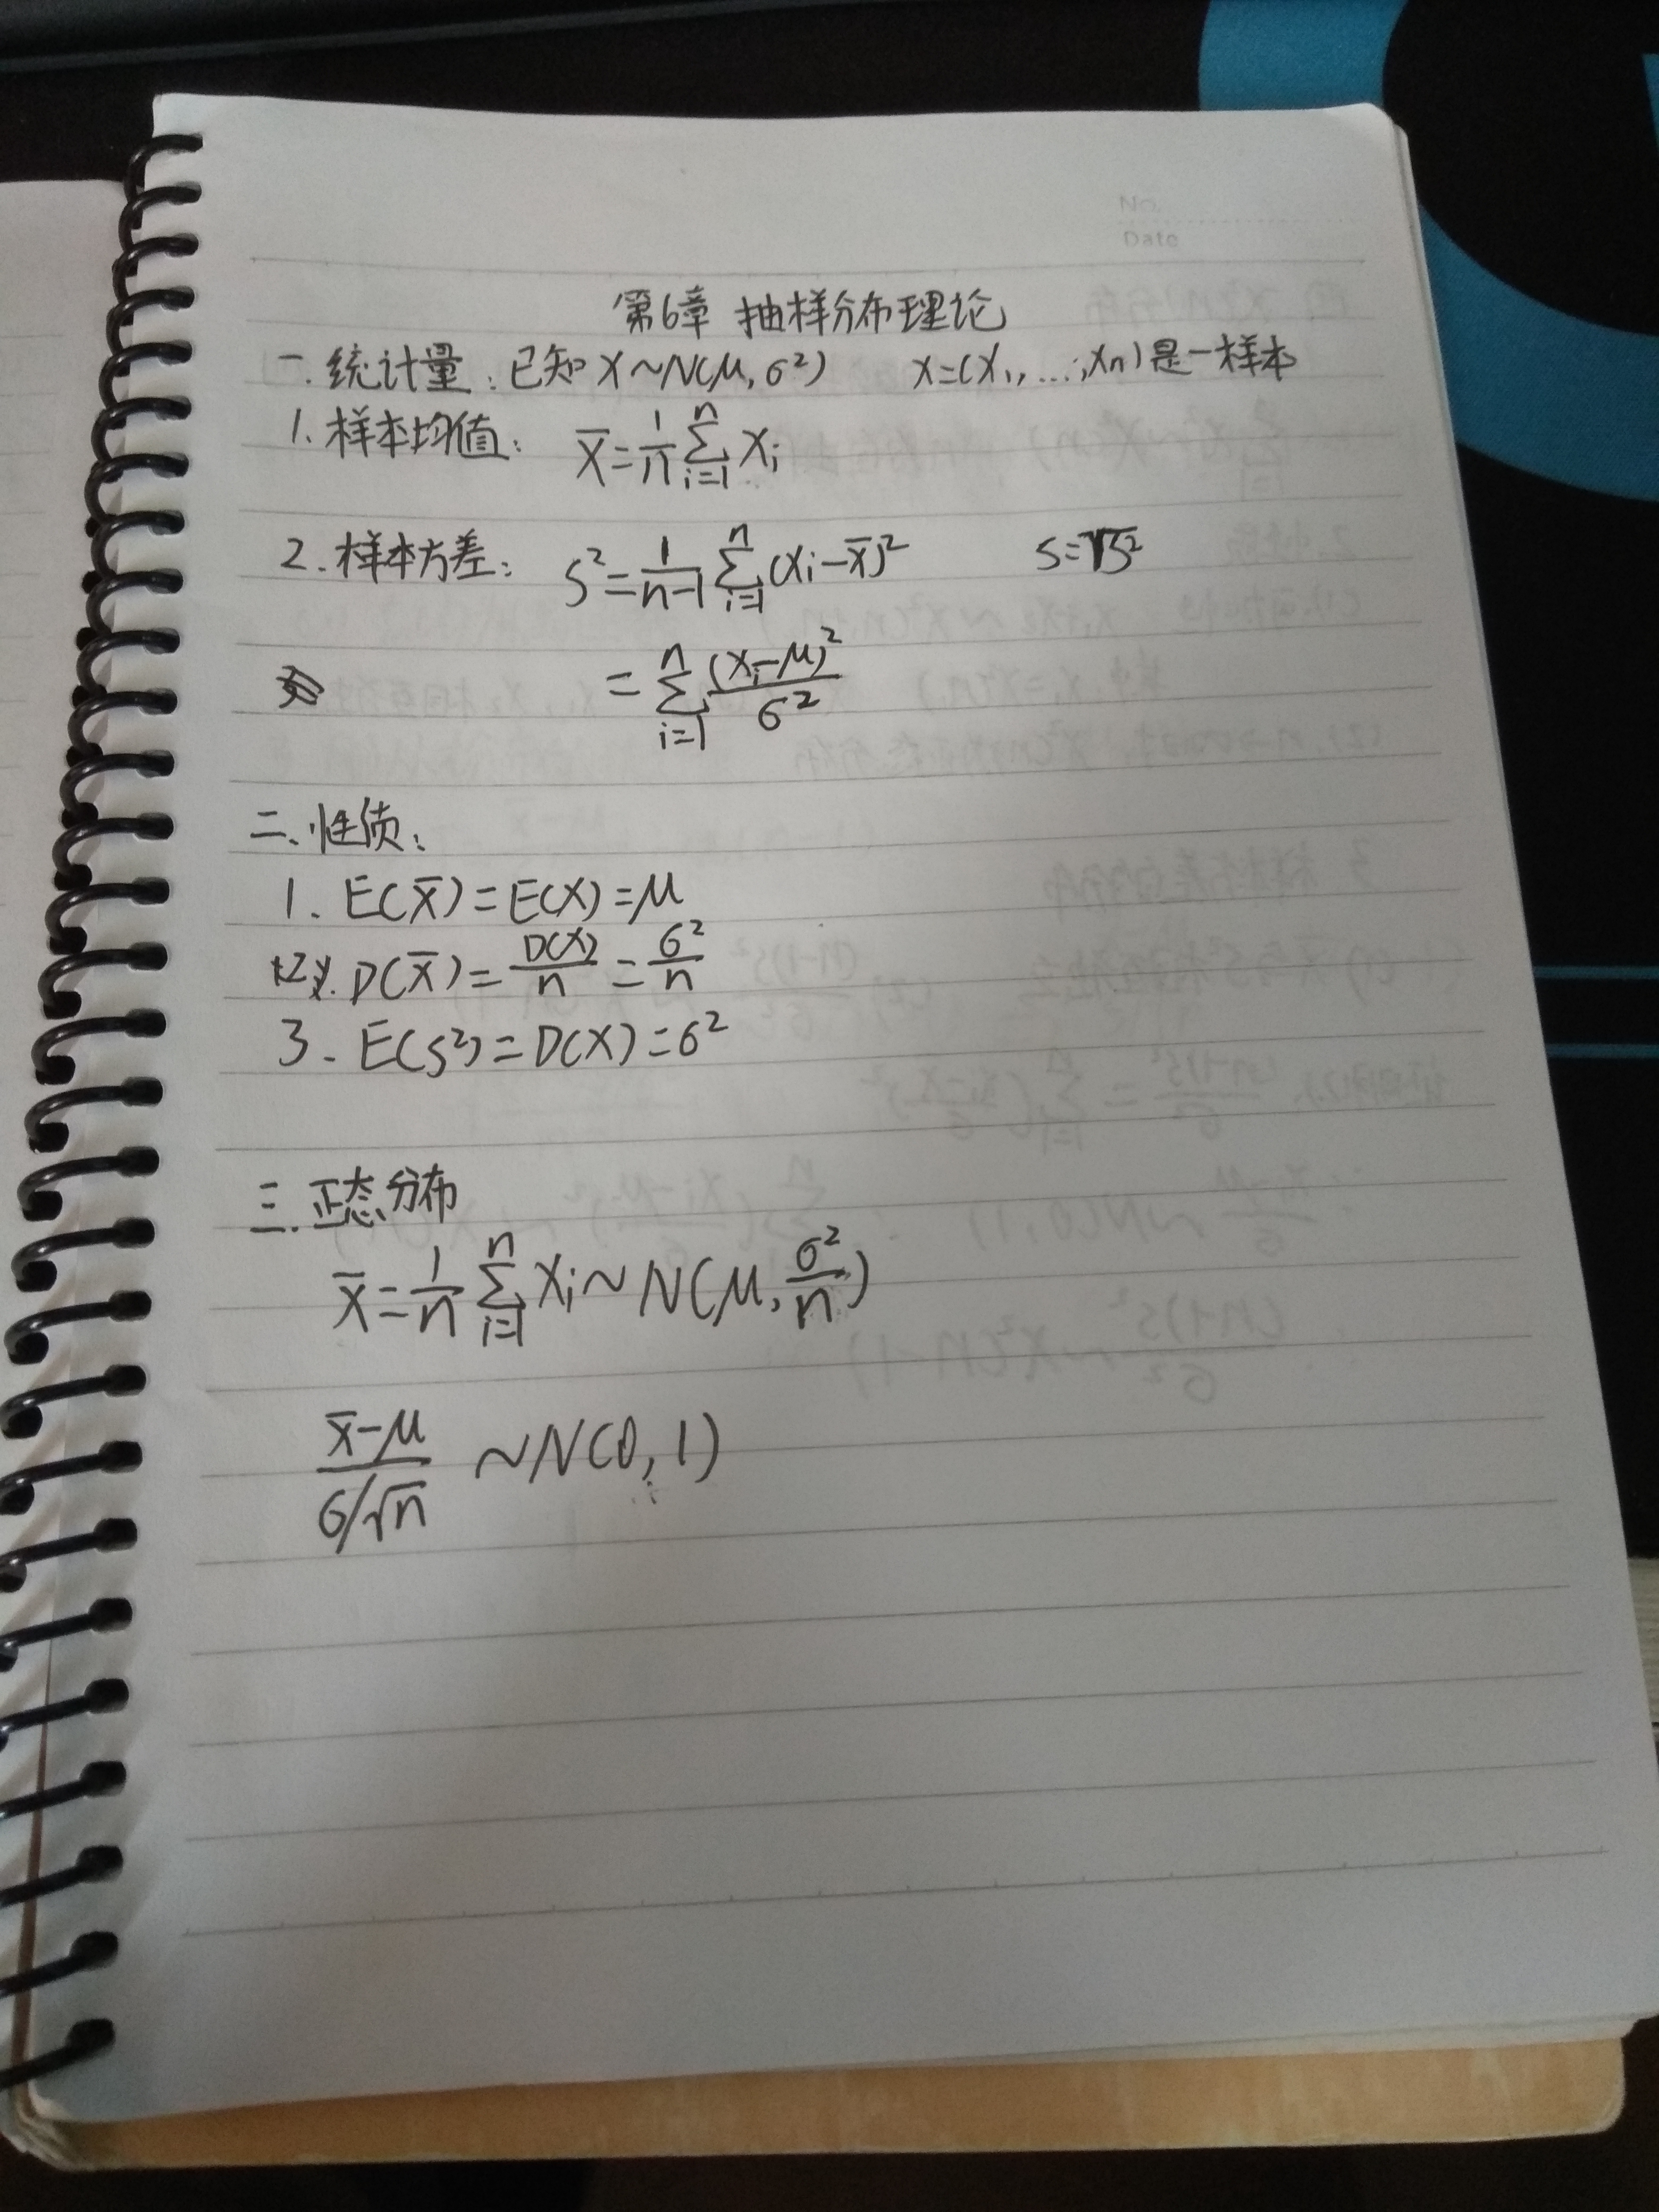 No.
Date
第6章 抽样分布理论
一.统计量:已知 X~N(μ,σ²) X=(X₁,...,Xn)是一样本
1.样本均值: X̄=1/n ∑ᵢ₌₁ⁿ Xᵢ
2.样本方差: S²=1/(n-1) ∑ᵢ₌₁ⁿ (Xᵢ-X̄)² S=√S²
= ∑ᵢ₌₁ⁿ (Xᵢ-μ)²/σ²
二、性质:
1. E(X̄)=E(X)=μ
2. D(X̄)=D(X)/n=σ²/n
3. E(S²)=D(X)=σ²
三.正态分布
X̄=1/n ∑ᵢ₌₁ⁿ Xᵢ~N(μ,σ²/n)
(X̄-μ)/(σ/√n) ~N(0,1)